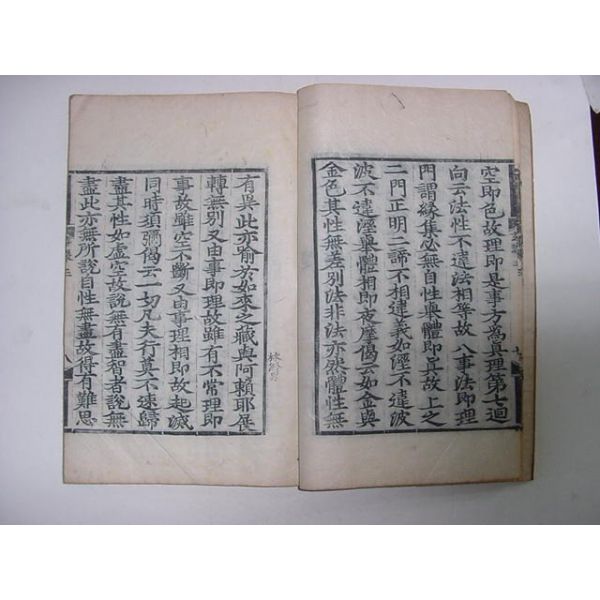 空即色故理即是事方爲眞理第七迴
向云法性不違法相等故 八事法即理
門謂緣集必無自性舉體即眞故 上之
二門正明二諦不相違義如溼不違波
波不違溼舉體相即夜摩偈云如金與
金色其性無差別法非法亦然體性無
有異此亦喻於如來之藏與阿賴耶展
轉無別又由事即理故雖有不常理即
事故雖空不斷又由事理相即故起滅
同時須彌偈云一切凡夫行莫不速歸
盡其性如虛空故說無有盡智者說無
盡此亦無所說自性無盡故得有難思